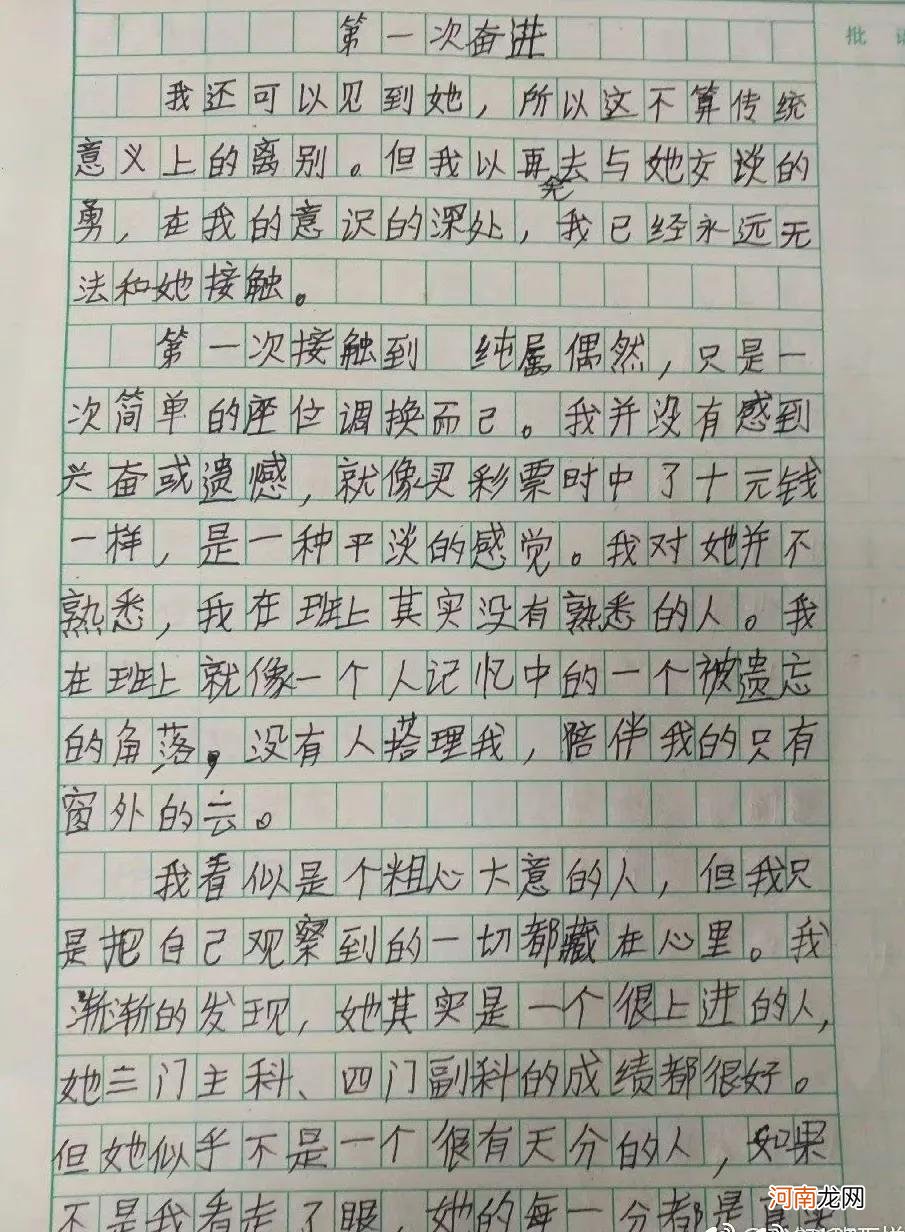 第一次奋进
批
我还可以见到她，所以这不算传统
意义上的离别。但我以再无去与她交谈的
勇，在我的意识的深处，我已经永远无
法和她接触。
第一次接触到 纯属偶然，只是一
次简单的座位调换而已。我并没有感到
兴奋或遗憾，就像买彩票时中了十元钱
一样，是一种平淡的感觉。我对她并不
熟悉，我在班上其实没有熟悉的人。我
在班上就像一个人记忆中的一个被遗忘
的角落，没有人搭理我，陪伴我的只有
窗外的云。
我看似是个粗心大意的人，但我只
是把自己观察到的一切都藏在心里。我
渐渐的发现，她其实是一个很上进的人，
她三门主科、四门副科的成绩都很好。
但她似乎不是一个很有天分的人，如果
不是我看走了眼，她的每一分都是
河南龙网